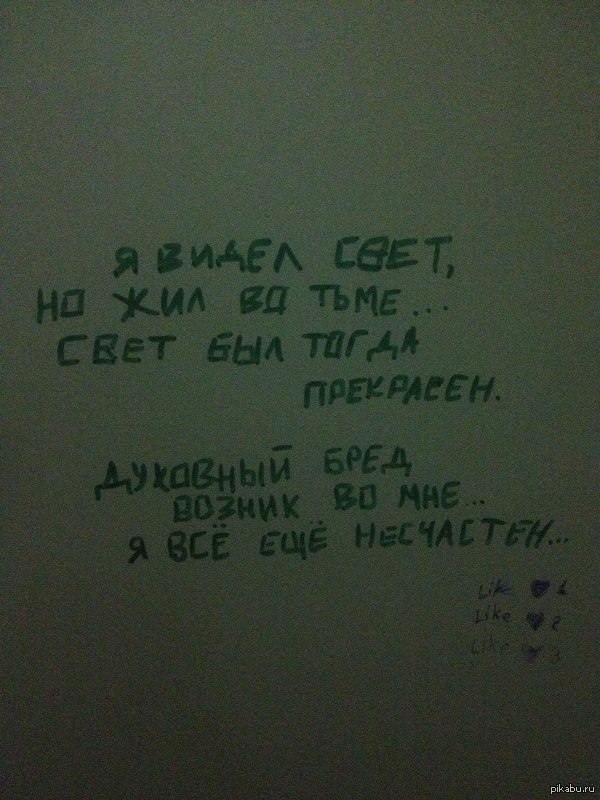 Я ВИДЕЛ СВЕТ,
НО ЖИЛ ВО ТЬМЕ...
СВЕТ БЫЛ ТОГДА
ПРЕКРАСЕН.
ДУХОВНЫЙ БРЕД
ВОЗНИК ВО МНЕ...
Я ВСЁ ЕЩЁ НЕСЧАСТЕН...
Like ♥ 1
Like ♥ 2
Like ♥ 3
pikabu.ru